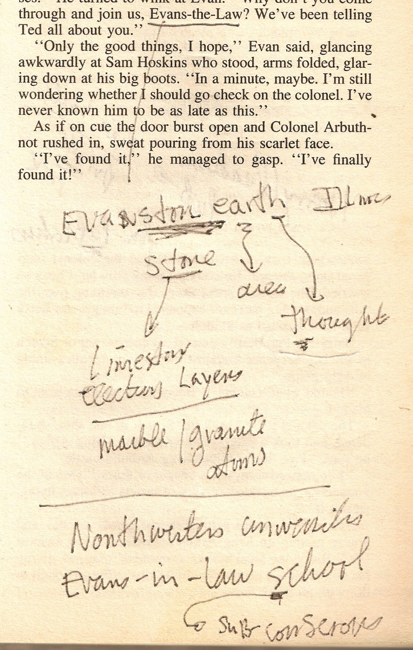 ses." He turned to wink at Evan. "Why don't you come
through and join us, Evans-the-Law? We've been telling
Ted all about you."
"Only the good things, I hope," Evan said, glancing
awkwardly at Sam Hoskins who stood, arms folded, glar-
ing down at his big boots. "In a minute, maybe. I'm still
wondering whether I should go check on the colonel. I've
never known him to be as late as this."
As if on cue the door burst open and Colonel Arbuth-
not rushed in, sweat pouring from his scarlet face.
"I've found it," he managed to gasp. "I've finally
found it!"
Evanston earth
stone
area
thought
Limestone
Layers
marble / granite
atoms
Northwestern
Evans-in-law school